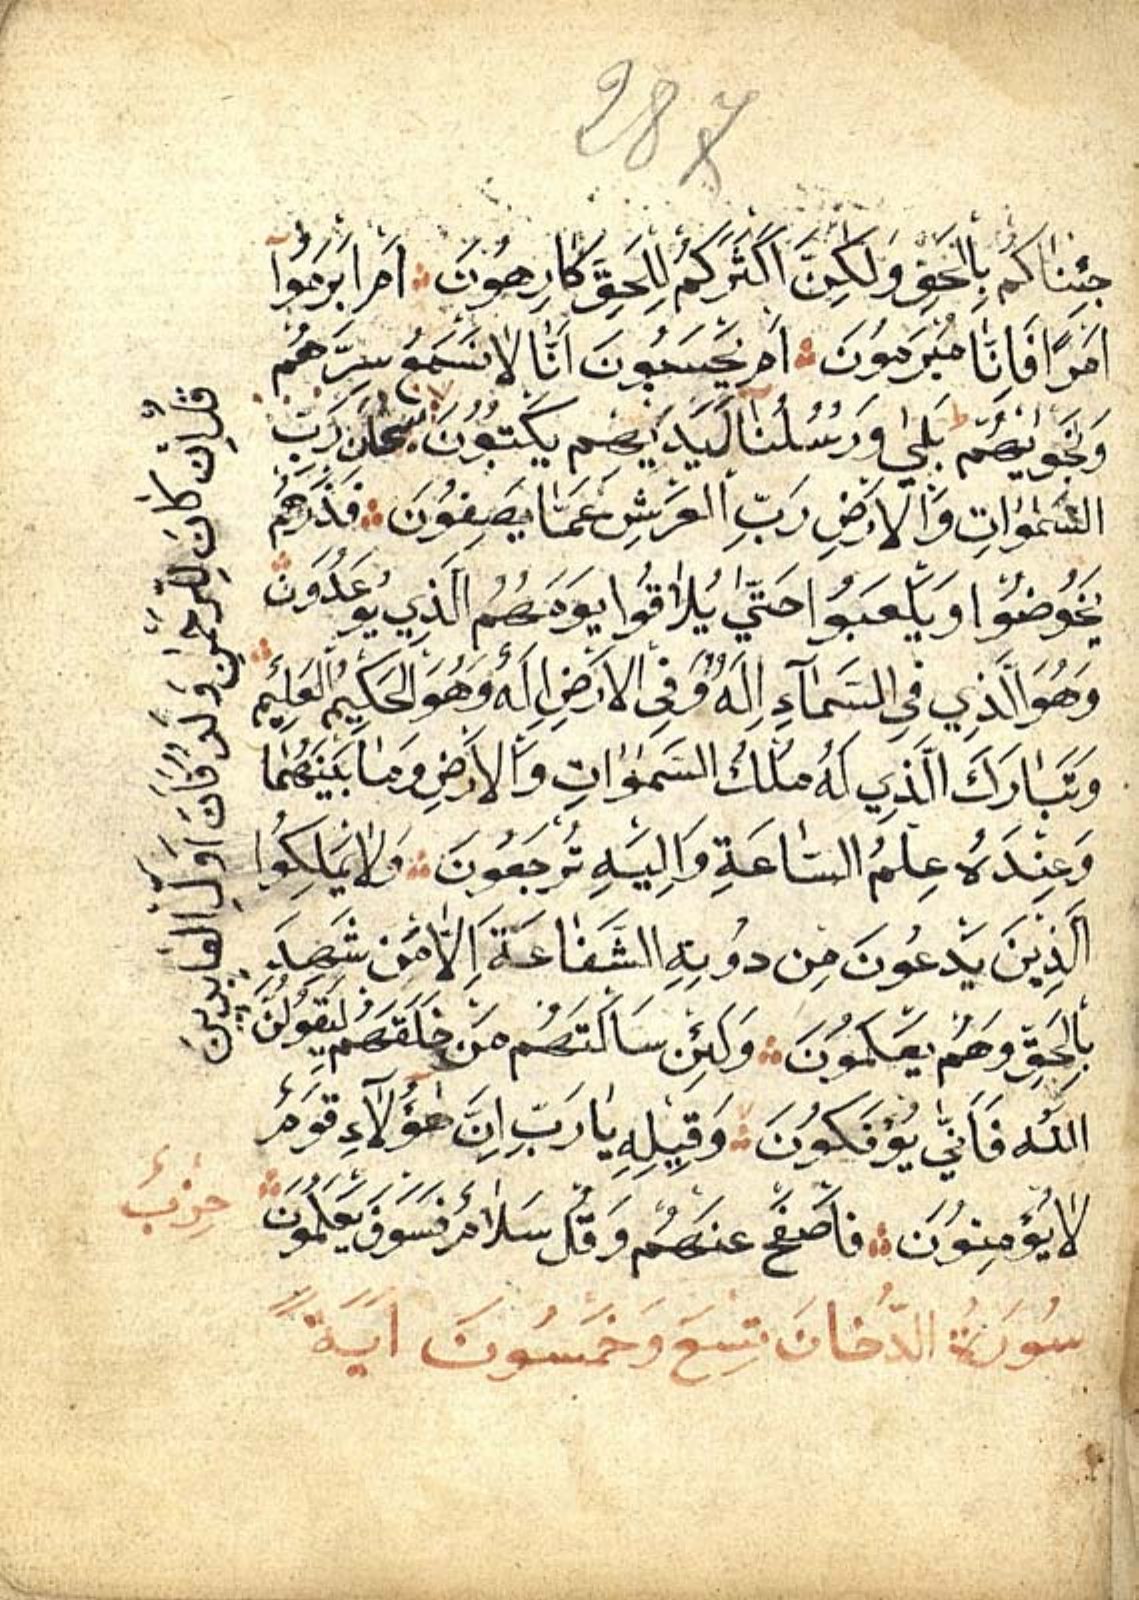 287
جِئْنَاكُمْ بِالْحَقِّ وَلَكِنَّ اَكْثَرَكُمْ لِلْحَقِّ كَارِهُونَ اَمْ اَبْرَمُوآ
اَمْرًا فَاِنَّا مُبْرِمُونَ اَمْ يَحْسَبُونَ اَنَّا لَا نَسْمَعُ سِرَّهُمْ
وَنَجْوٰيهُمْ بَلٰى وَرُسُلُنَا لَدَيْهِمْ يَكْتُبُونَ سُبْحَانَ رَبِّ
السَّمٰوَاتِ وَالْاَرْضِ رَبِّ الْعَرْشِ عَمَّا يَصِفُونَ فَذَرْهُمْ
يَخُوضُوا وَيَلْعَبُوا حَتّٰى يُلَاقُوا يَوْمَهُمُ الَّذِي يُوعَدُونَ
وَهُوَ الَّذِي فِي السَّمَآءِ اِلَهٌ وَفِي الْاَرْضِ اِلَهٌ وَهُوَ الْحَكِيمُ الْعَلِيمُ
وَتَبَارَكَ الَّذِي لَهُ مُلْكُ السَّمٰوَاتِ وَالْاَرْضِ وَمَا بَيْنَهُمَا
وَعِنْدَهُ عِلْمُ السَّاعَةِ وَاِلَيْهِ تُرْجَعُونَ وَلَا يَمْلِكُوا
الَّذِينَ يَدْعُونَ مِنْ دُونِهِ الشَّفَاعَةَ اِلَّا مَنْ شَهِدَ
بِالْحَقِّ وَهُمْ يَعْلَمُونَ وَلَئِنْ سَاَلْتَهُمْ مَنْ خَلَقَهُمْ لَيَقُولُنَّ
اللّٰه فَاَنّٰى يُؤْفَكُونَ وَقِيلِهِ يَا رَبِّ اِنَّ هٰؤُلَآءِ قَوْمٌ
لَا يُؤْمِنُونَ فَاصْفَحْ عَنْهُمْ وَقُلْ سَلَامٌ فَسَوْفَ يَعْلَمُونَ
سُورَةُ الدُّخَانَ تِسْعَ وَخَمْسُونَ اٰيَةً
قُلْ اِنْ كَانَ لِلرَّحْمٰنِ وَلَدٌ فَاَنَا اَوَّلُ الْعَابِدِينَ
حِزْبٌ